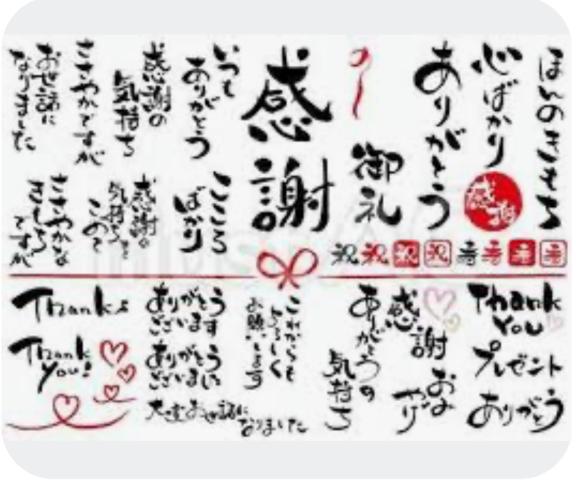 ほんのきもち
心ばかり
感謝
ありがとう
御礼
感謝
いつも
ありがとう
こころ
ばかり
感謝の
気持ち
感謝の
気持ちを
こめて
ささやかですが
ささやかな
きもち
ですが
お世話に
なりました
祝 祝 祝 祝 寿 寿 寿 寿
Thank
You
プレゼント
ありがとう
感謝
ありがとうの
気持ち
これからも
よろしく
お願いします
ありがとう
ございます
ありがとう
ございました
大変お世話に
なりました
Thanks
Thank
You!